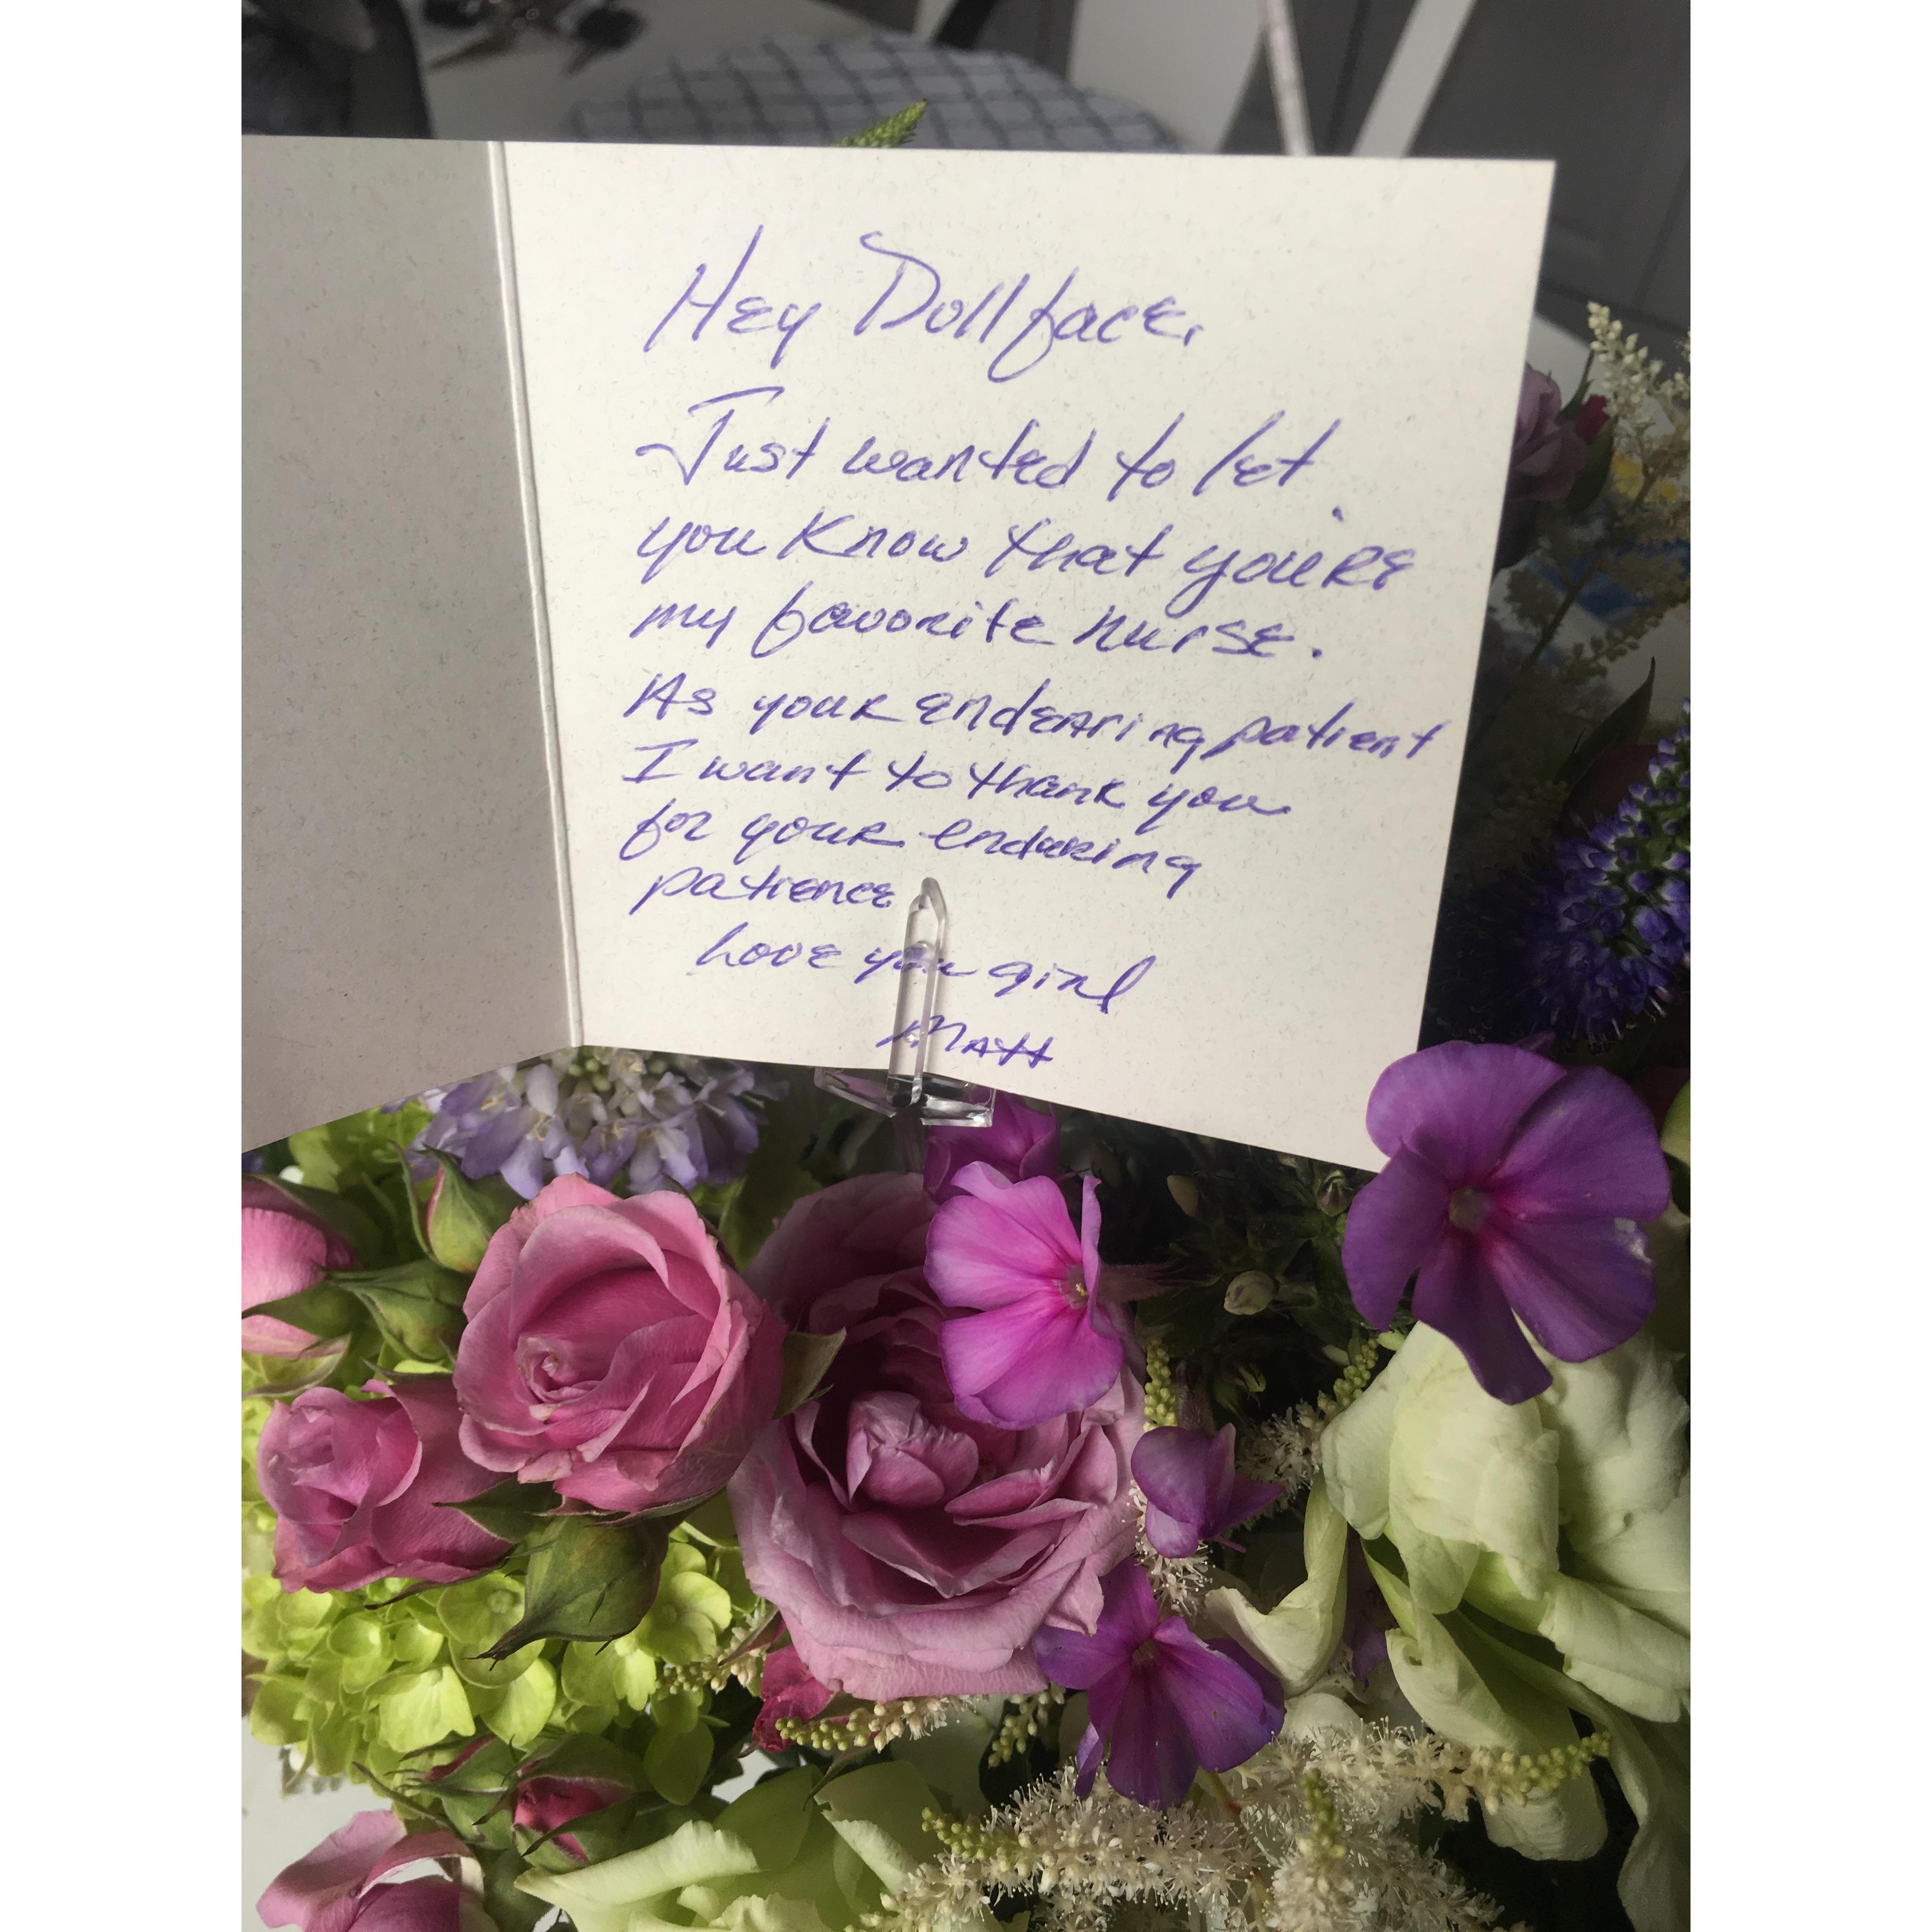 Hey Dollface,
Just wanted to let
you know that you're
my favorite nurse.
As your endearing patient
I want to thank you
for your enduring
patience
Love you girl
Matt